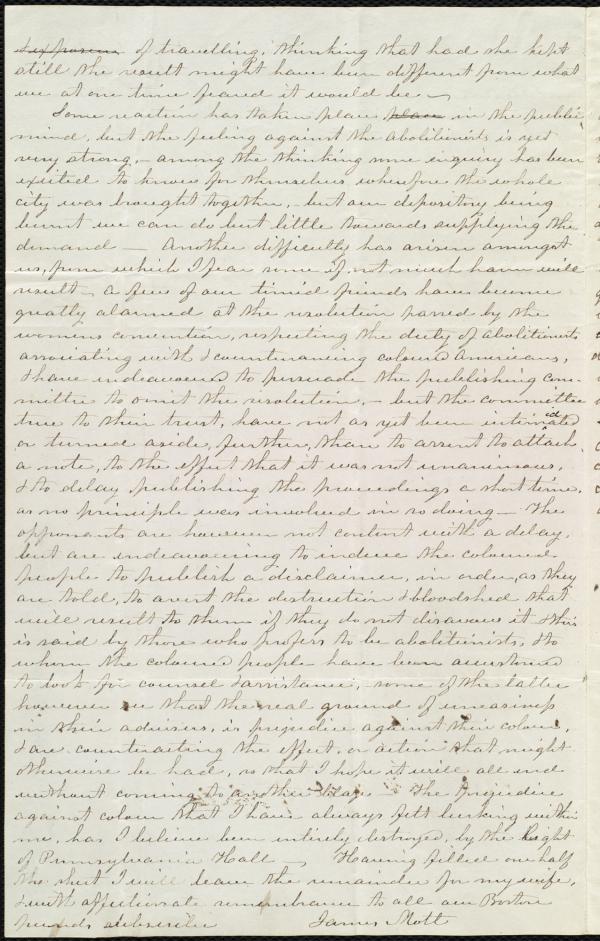 & exposure of travelling, thinking that had she kept
still the result might have been different from what
we at one time feared it would be —
Some reaction has taken place place in the public
mind, but the feeling against the abolitionists is yet
very strong, – among the thinking some enquiry has been
excited to know for themselves wherefore the whole
city was brought together, – but our depository being
burnt we can do but little towards supplying the
demand — Another difficulty has arisen amongst
us, from which I fear some if not much harm will
result – a few of our timid friends have become
greatly alarmed at the resolution passed by the
womens convention, respecting the duty of abolitionists
associating with & countenancing coloured Americans,
& have indeavoured to persuade the publishing com-
mittee to omit the resolution, – but the committee
true to their trust, have not as yet been intimidated
or turned aside, further, than to assent to attach
a note, to the effect that it was not unanimous,
& to delay publishing the proceedings a short time,
as no principle was involved in so doing — The
opponants are however not content with a delay,
but are indeavouring to induce the coloured
people to publish a disclaimer, in order, as they
are told, to avert the distruction & bloodshed that
will result to them if they do not disavow it & this
is said by those who profess to be abolitionists, & to
whom the coloured people have been accustomed
to look for counsel & assistance, – some of the latter
however see that the real ground of uneasiness
in their advisers, is prejudice against their colour,
& are counteracting the effect, or action that might
otherwise be had, so that I hope it will all end
without coming to another – The prejudice
against colour that I have always felt lurking within
me, has I believe been intirely destroyed, by the light
of Pennsylvania Hall — Having filled one half
the sheet I will leave the remainder for my wife,
& with affectionate remembrance to all our Boston
friends subscribe James Mott